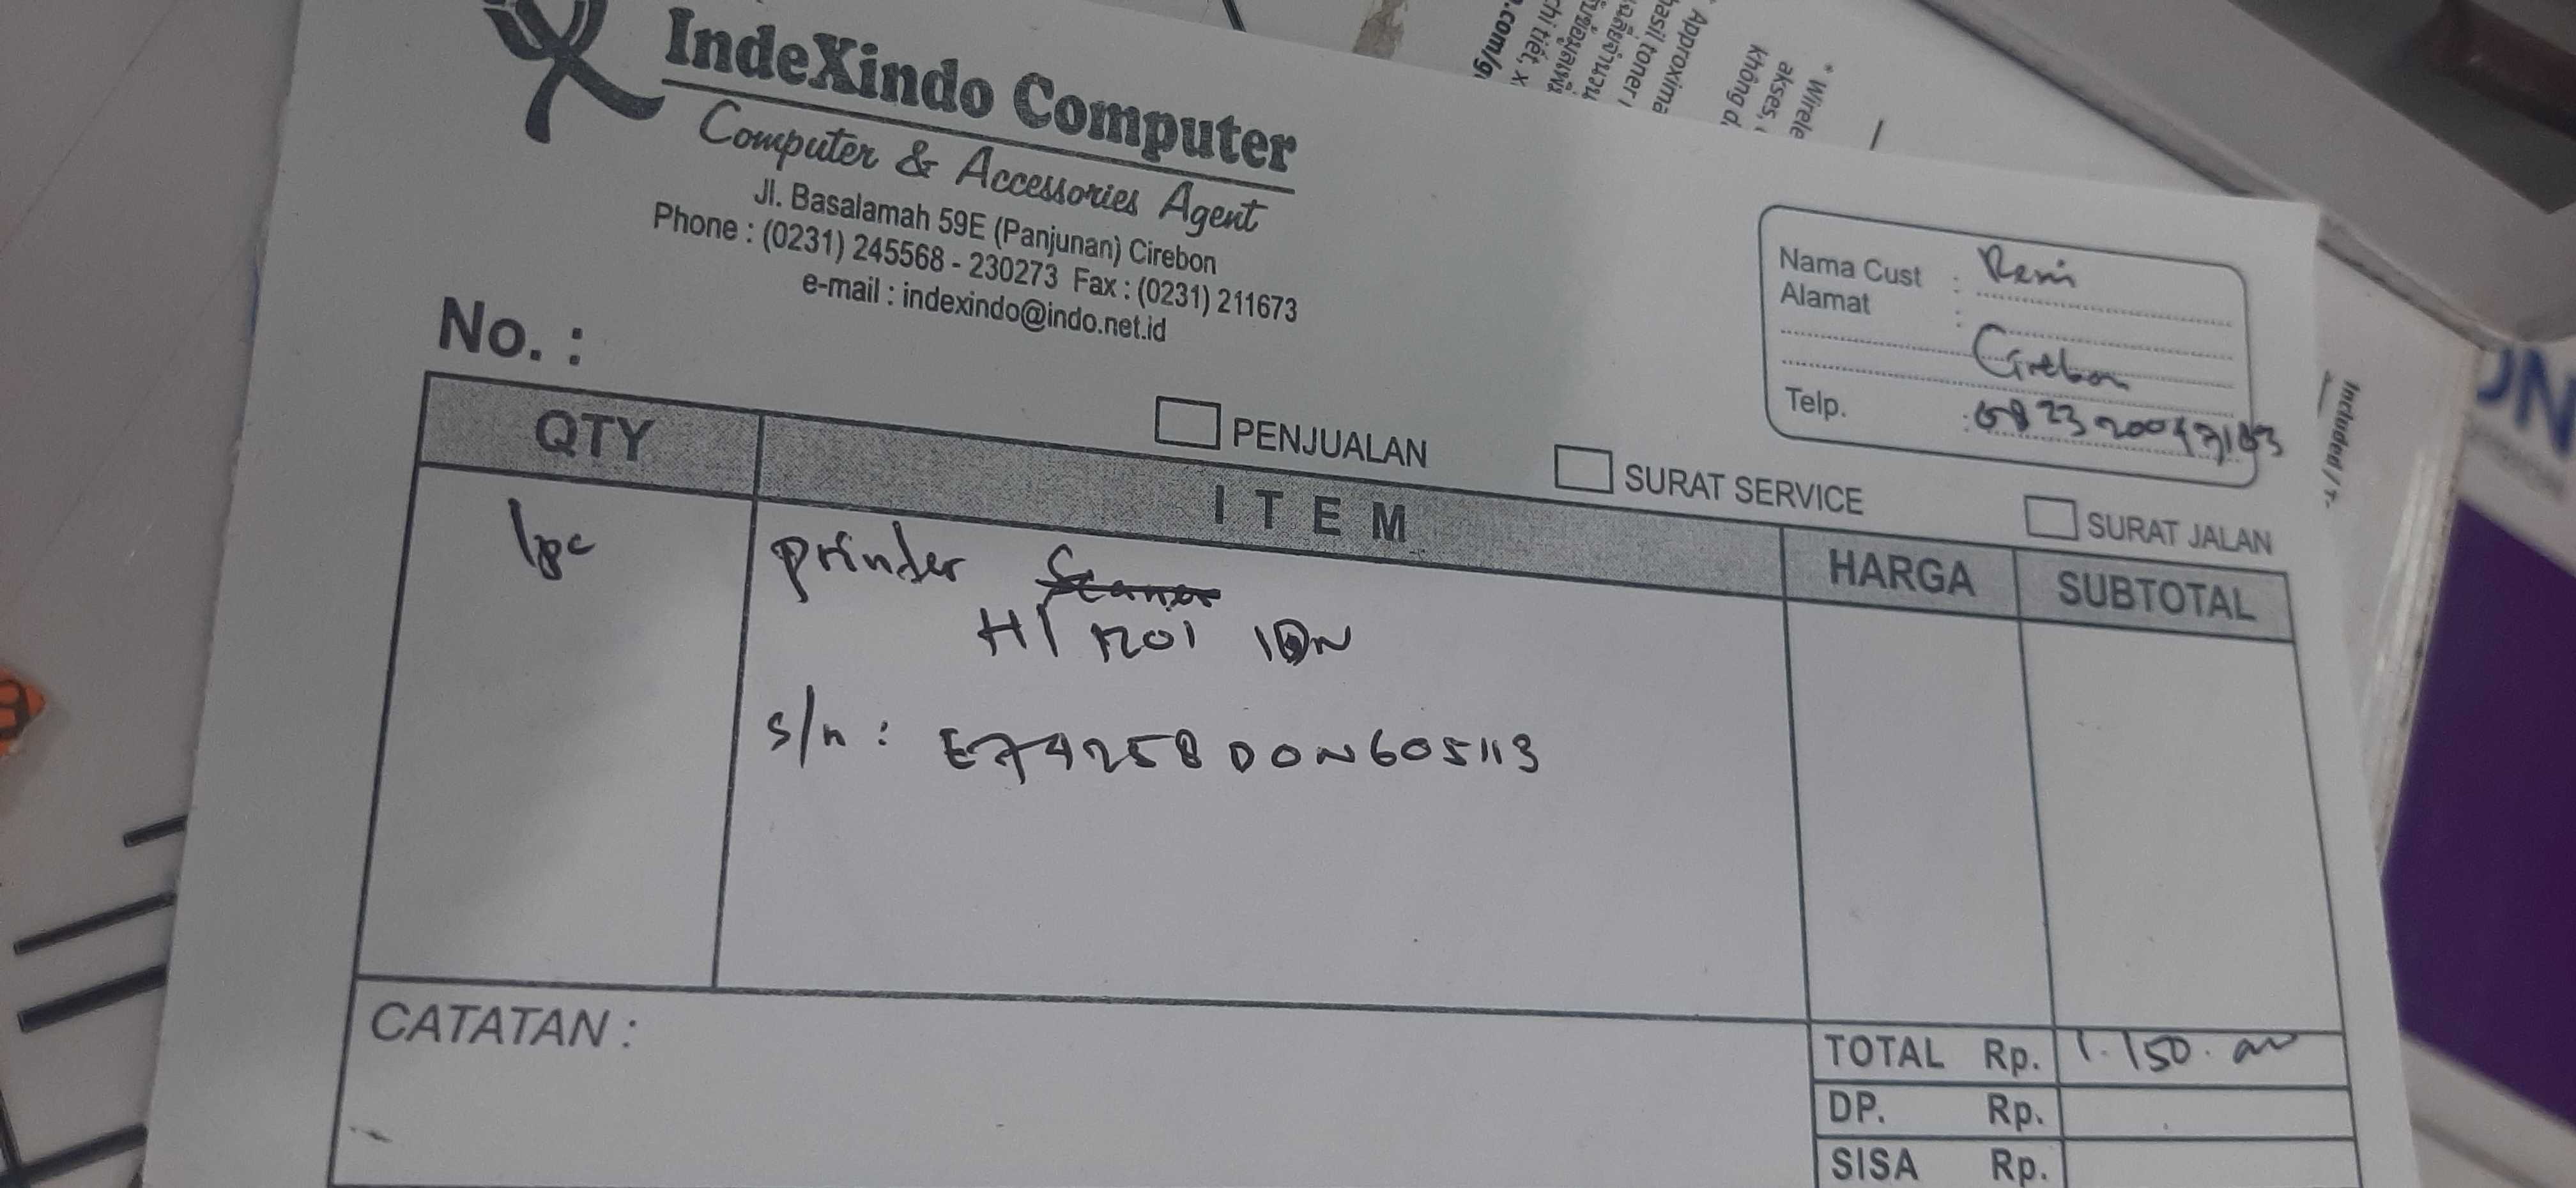 IndeXindo Computer
Computer & Accessories Agent
Jl. Basalamah 59E (Panjunan) Cirebon
Phone : (0231) 245568 - 230273 Fax : (0231) 211673
e-mail : indexindo@indo.net.id
Nama Cust : Reni
Alamat :
Cirebon
Telp. :
No. :
PENJUALAN
SURAT SERVICE
SURAT JALAN
QTY
ITEM
HARGA
SUBTOTAL
1pc
printer
s/n : E74258D0N605113
CATATAN :
TOTAL Rp. 1.150.
DP. Rp.
SISA Rp.
.com/g
chi tiết, x
hasil toner
* Approxima
không d
akses,
* Wirele
Included /